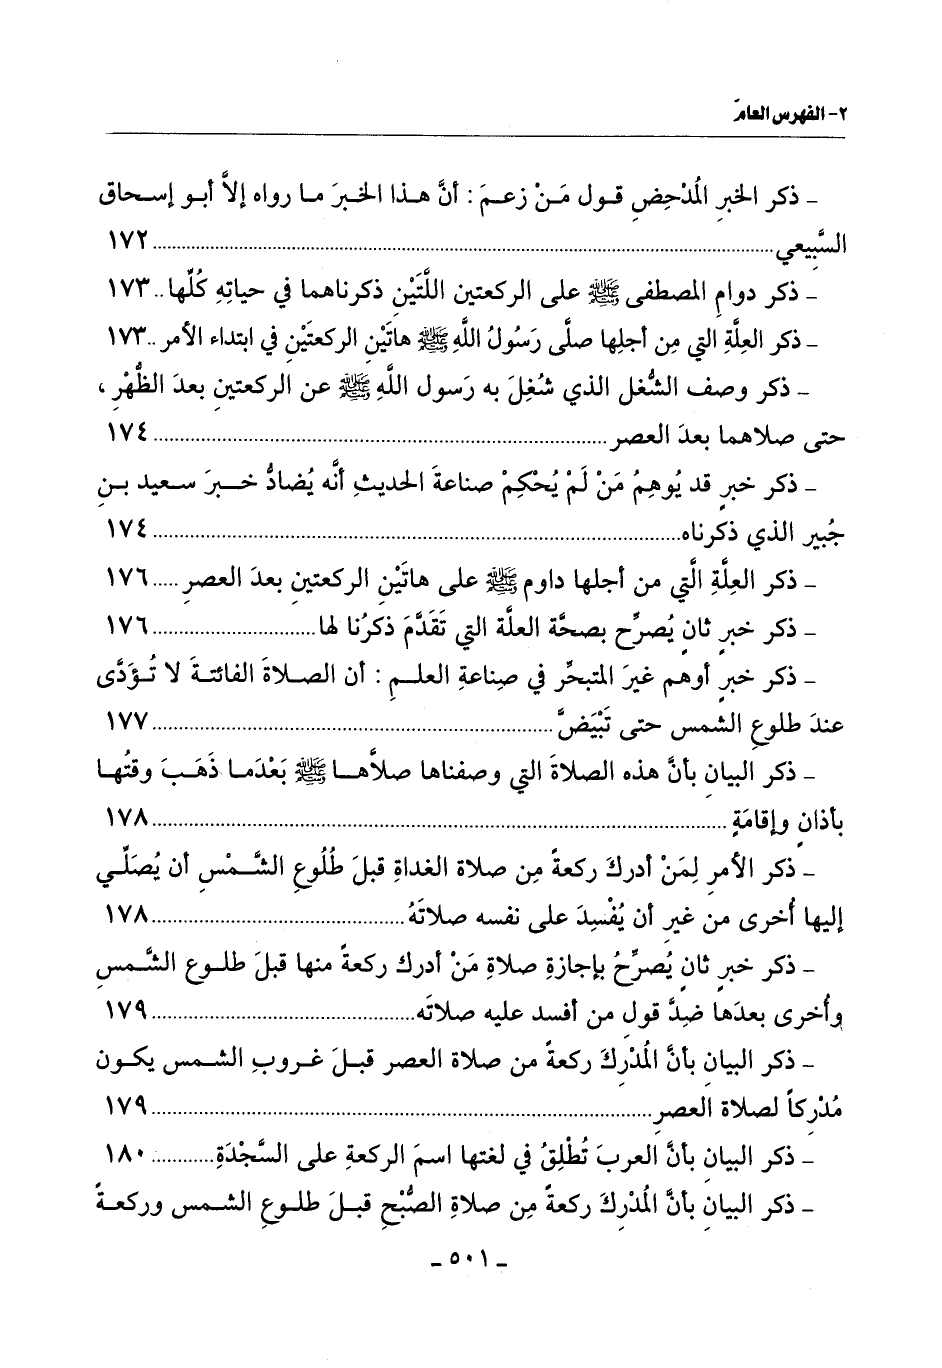 ٢- الفهرس العامّ
- ذكر الخبرِ المُدْحِضِ قول مَنْ زعمَ : أنَّ هذا الخبرَ ما رواه إلاَّ أبو إسحاق
السَّبِيعي ........ ١٧٢
- ذكر دوامِ المصطفى ﷺ على الركعتين اللَّتَيْنِ ذكرناهما في حياتِهِ كُلِّها .. ١٧٣
- ذكر العِلَّةِ التي مِن أجلِها صلَّى رَسُولُ اللَّهِ ﷺ هاتَيْنِ الركعتَيْنِ في ابتداء الأمر .. ١٧٣
- ذكر وصف الشُّغل الذي شُغِلَ به رَسول اللَّهِ ﷺ عن الركعتينِ بعدَ الظُّهْرِ ،
حتى صلاهما بعدَ العصر ........ ١٧٤
- ذكر خبرٍ قد يُوهِمُ مَنْ لَمْ يُحْكِمْ صناعةَ الحديثِ أنَّه يُضادُّ خبرَ سعيد بنِ
جُبير الذي ذكرناه ........ ١٧٤
- ذكر العِلَّةِ الَّتي من أجلها داوم ﷺ على هاتَيْنِ الركعتينِ بعدَ العصرِ ..... ١٧٦
- ذكر خبرٍ ثانٍ يُصرِّح بصحَّة العلَّة التي تَقَدَّمَ ذكرُنا لها ........ ١٧٦
- ذكر خبرٍ أوهم غيرَ المتبحِّر في صِناعةِ العلمِ : أن الصلاةَ الفائتةَ لا تُؤَدَّى
عندَ طلوعِ الشمس حتى تَبْيَضَّ ........ ١٧٧
- ذكر البيانِ بأنَّ هذه الصلاةَ التي وصفناها صلاَّها ﷺ بَعْدَما ذَهَبَ وقتُها
بأذانٍ وإقامَةٍ ........ ١٧٨
- ذكر الأمرِ لِمَنْ أدركَ ركعةً مِن صلاة الغداةِ قبلَ طُلُوعِ الشَّمْسِ أن يُصَلِّي
إليها أُخرى من غيرِ أن يُفْسِدَ على نفسه صلاتَهُ ........ ١٧٨
- ذكر خبرٍ ثانٍ يُصرِّحُ بإجازةِ صلاةِ مَنْ أدرك ركعةً منها قبلَ طلوع الشَّمسِ
وأُخرى بعدَها ضِدَّ قول من أفسد عليه صلاتَه ........ ١٧٩
- ذكر البيانِ بأنَّ المُدْرِكَ ركعةً من صلاة العصر قبلَ غروبِ الشمسِ يكون
مُدْرِكاً لصلاة العصرِ ........ ١٧٩
- ذكر البيانِ بأنَّ العربَ تُطْلِقُ في لغتها اسمَ الركعةِ على السَّجْدَةِ ........ ١٨٠
- ذكر البيانِ بأنَّ المُدْرِكَ ركعةً مِن صلاةِ الصُّبْحِ قبلَ طلوعِ الشمسِ وركعةً
- ٥٠١ -